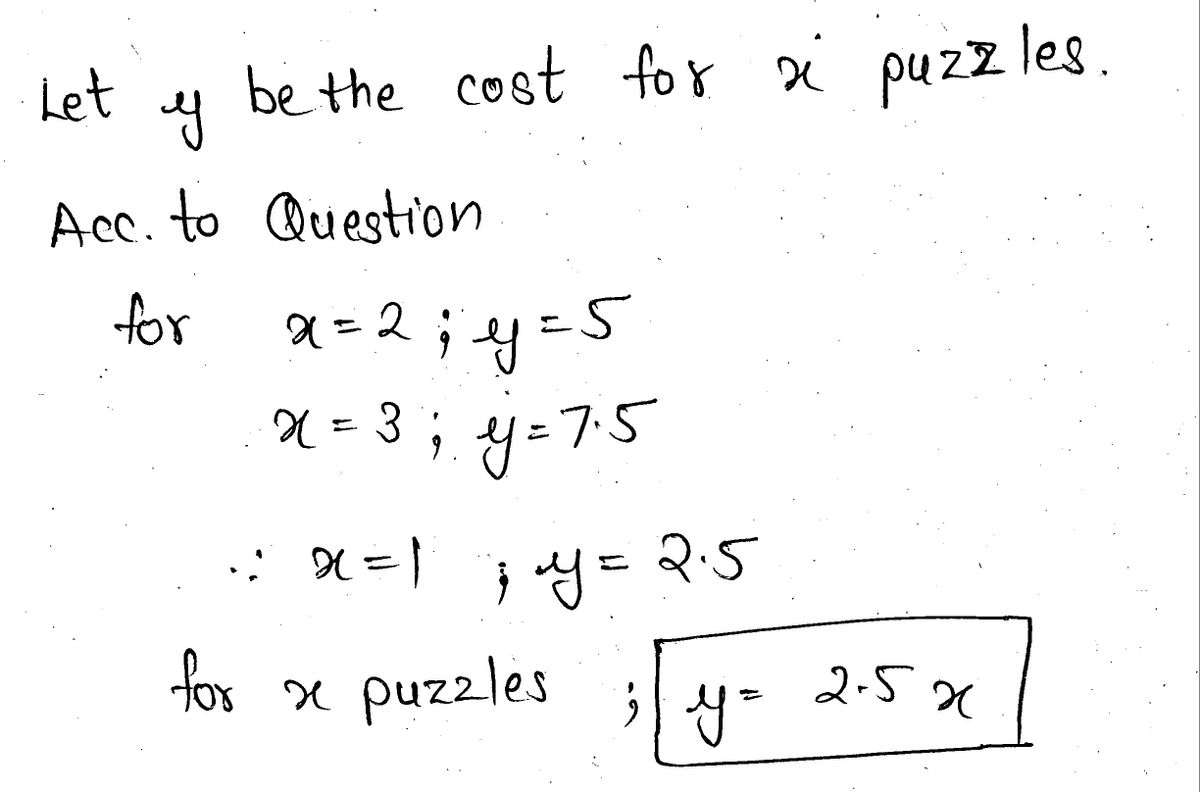 Let y be the cost for x puzzles.
Acc. to Question
for x = 2 ; y = 5
x = 3 ; y = 7.5
∴ x = 1 ; y = 2.5
for x puzzles ; y = 2.5 x